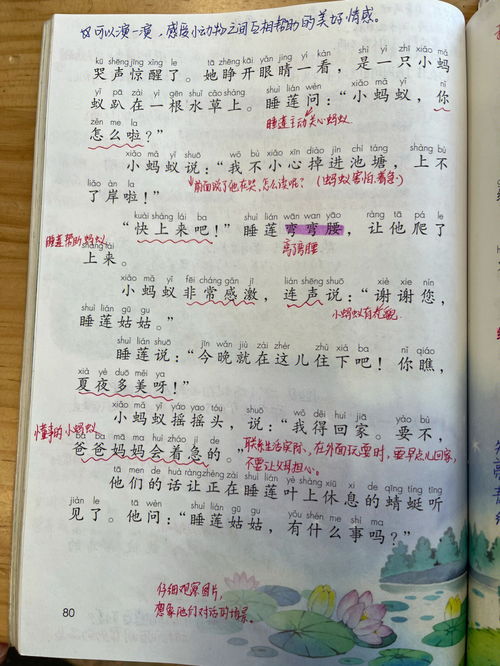 可以演一演，感受小动物之间互相帮助的美好情感。
kū shēng jīng xǐng le tā zhēng kāi yǎn jing yí kàn shì yì zhī xiǎo mǎ
哭声惊醒了。她睁开眼睛一看，是一只小蚂
yǐ pā zài yì gēn shuǐ cǎo shàng shuì lián wèn xiǎo mǎ yǐ nǐ
蚁趴在一根水草上。睡莲问：“小蚂蚁，你
睡莲主动关心蚂蚁
zěn me la
怎么啦？”
xiǎo mǎ yǐ shuō wǒ bù xiǎo xīn diào jìn chí táng shàng bù
小蚂蚁说：“我不小心掉进池塘，上不
前面说了他在哭，怎么读呢？（蚂蚁害怕、着急）
liǎo àn la
了岸啦！”
kuài shàng lái ba shuì lián wān wan yāo ràng tā pá le
“快上来吧！”睡莲弯弯腰，让他爬了
睡莲帮助蚂蚁
弯弯腰
shàng lái
上来。
xiǎo mǎ yǐ fēi cháng gǎn jī lián shēng shuō xiè xie nín
小蚂蚁非常感激，连声说：“谢谢您，
小蚂蚁有礼貌
shuì lián gū gu
睡莲姑姑。”
shuì lián shuō jīn wǎn jiù zài zhèr zhù xià ba nǐ qiáo
睡莲说：“今晚就在这儿住下吧！你瞧，
xià yè duō měi ya
夏夜多美呀！”
xiǎo mǎ yǐ yáo yao tóu shuō wǒ děi huí jiā yào bù
小蚂蚁摇摇头，说：“我得回家。要不，
懂事的小蚂蚁
bà ba mā ma huì zháo jí de
爸爸妈妈会着急的。”
联系生活实际，在外面玩耍时，要早点儿回家，
不要让父母担心。
tā men de huà ràng zhèng zài shuì lián yè shàng xiū xi de qīng tíng tīng
他们的话让正在睡莲叶上休息的蜻蜓听
jiàn le tā wèn shuì lián gū gu yǒu shén me shì ma
见了。他问：“睡莲姑姑，有什么事吗？”
仔细观察图片，
想象他们对话的场景。
80